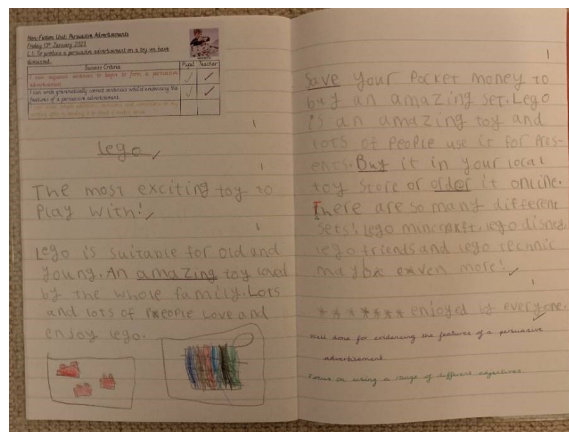 Non-Fiction Unit: Persuasive Advertisements
Friday 13th January 2023
L.I. To produce a persuasive advertisement on a toy we have
discussed.
Success Criteria Pupil Teacher
I can organise sentences to begin to form a persuasive
advertisement.
I can write grammatically correct sentences whilst evidencing the
features of a persuasive advertisement.
lego
The most exciting toy to
Play with!
Lego is suitable for old and
young. An amazing toy loved
by the whole family. Lots
and lots of people love and
enjoy lego.
Save your Pocket money to
buy an amazing set. Lego
is an amazing toy and
lots of People use it for Pres-
ents. Buy it in your local
toy store or order it online.
There are so many different
sets! lego minecraft, lego disney
lego friends and lego technic
maybe even more!
enjoyed by everyone.
Well done for evidencing the features of a persuasive
advertisement.
Focus on using a range of different adjectives.